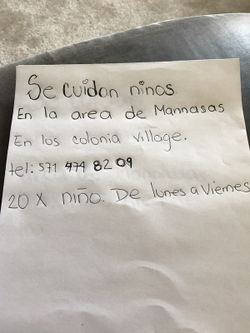 Se cuidan ninos
En la area de Mannasas
En los colonia village.
tel: 571 474 8209
20 x niño. De lunes a Viernes